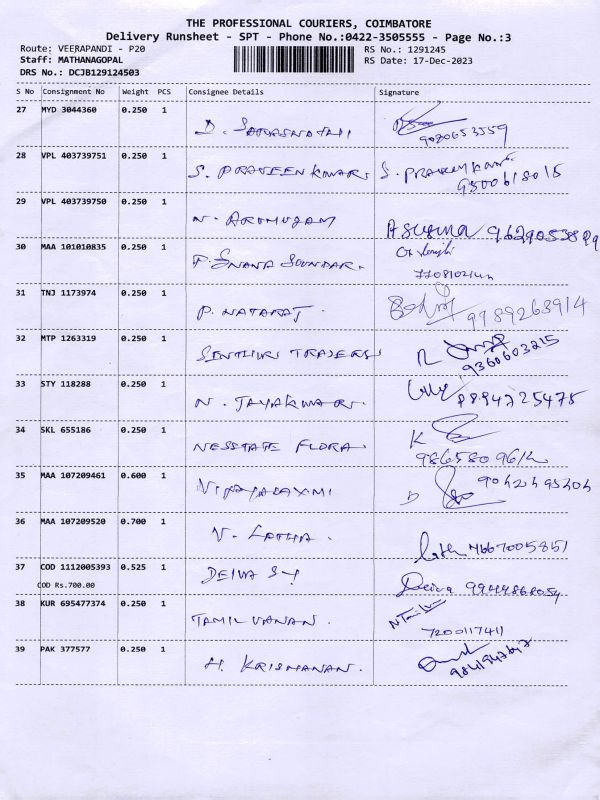 THE PROFESSIONAL COURIERS, COIMBATORE
Delivery Runsheet - SPT - Phone No.:0422-3505555 - Page No.:3
Route: VEERAPANDI - P20 RS No.: 1291245
Staff: MATHANAGOPAL RS Date: 17-Dec-2023
DRS No.: DCJB129124503
S No Consignment No Weight PCS Consignee Details Signature
27 MYD 3044360 0.250 1
D.
9080653559
28 VPL 403739751 0.250 1
S. PRAVEEN KUMAR. S.
9500618015
29 VPL 403739750 0.250 1
N. ARUMUGAM
30 MAA 101010835 0.250 1
SOUNDAR.
31 TNJ 1173974 0.250 1
P. NATARAJ. 9989263914
32 MTP 1263319 0.250 1
TRADERS
9360603215
33 STY 118288 0.250 1
N. JAYAKUMAR. 8894725475
34 SKL 655186 0.250 1
NESSTATE FLORA. K
35 MAA 107209461 0.600 1
VIJAYALAXMI
36 MAA 107209520 0.700 1
V. LATHA.
37 COD 1112005393 0.525 1
DEIVA Deiva
COD Rs.700.00
38 KUR 695477374 0.250 1
TAMILVANAN.
7200117411
39 PAK 377577 0.250 1
H. KRISHANAN.
9841947647